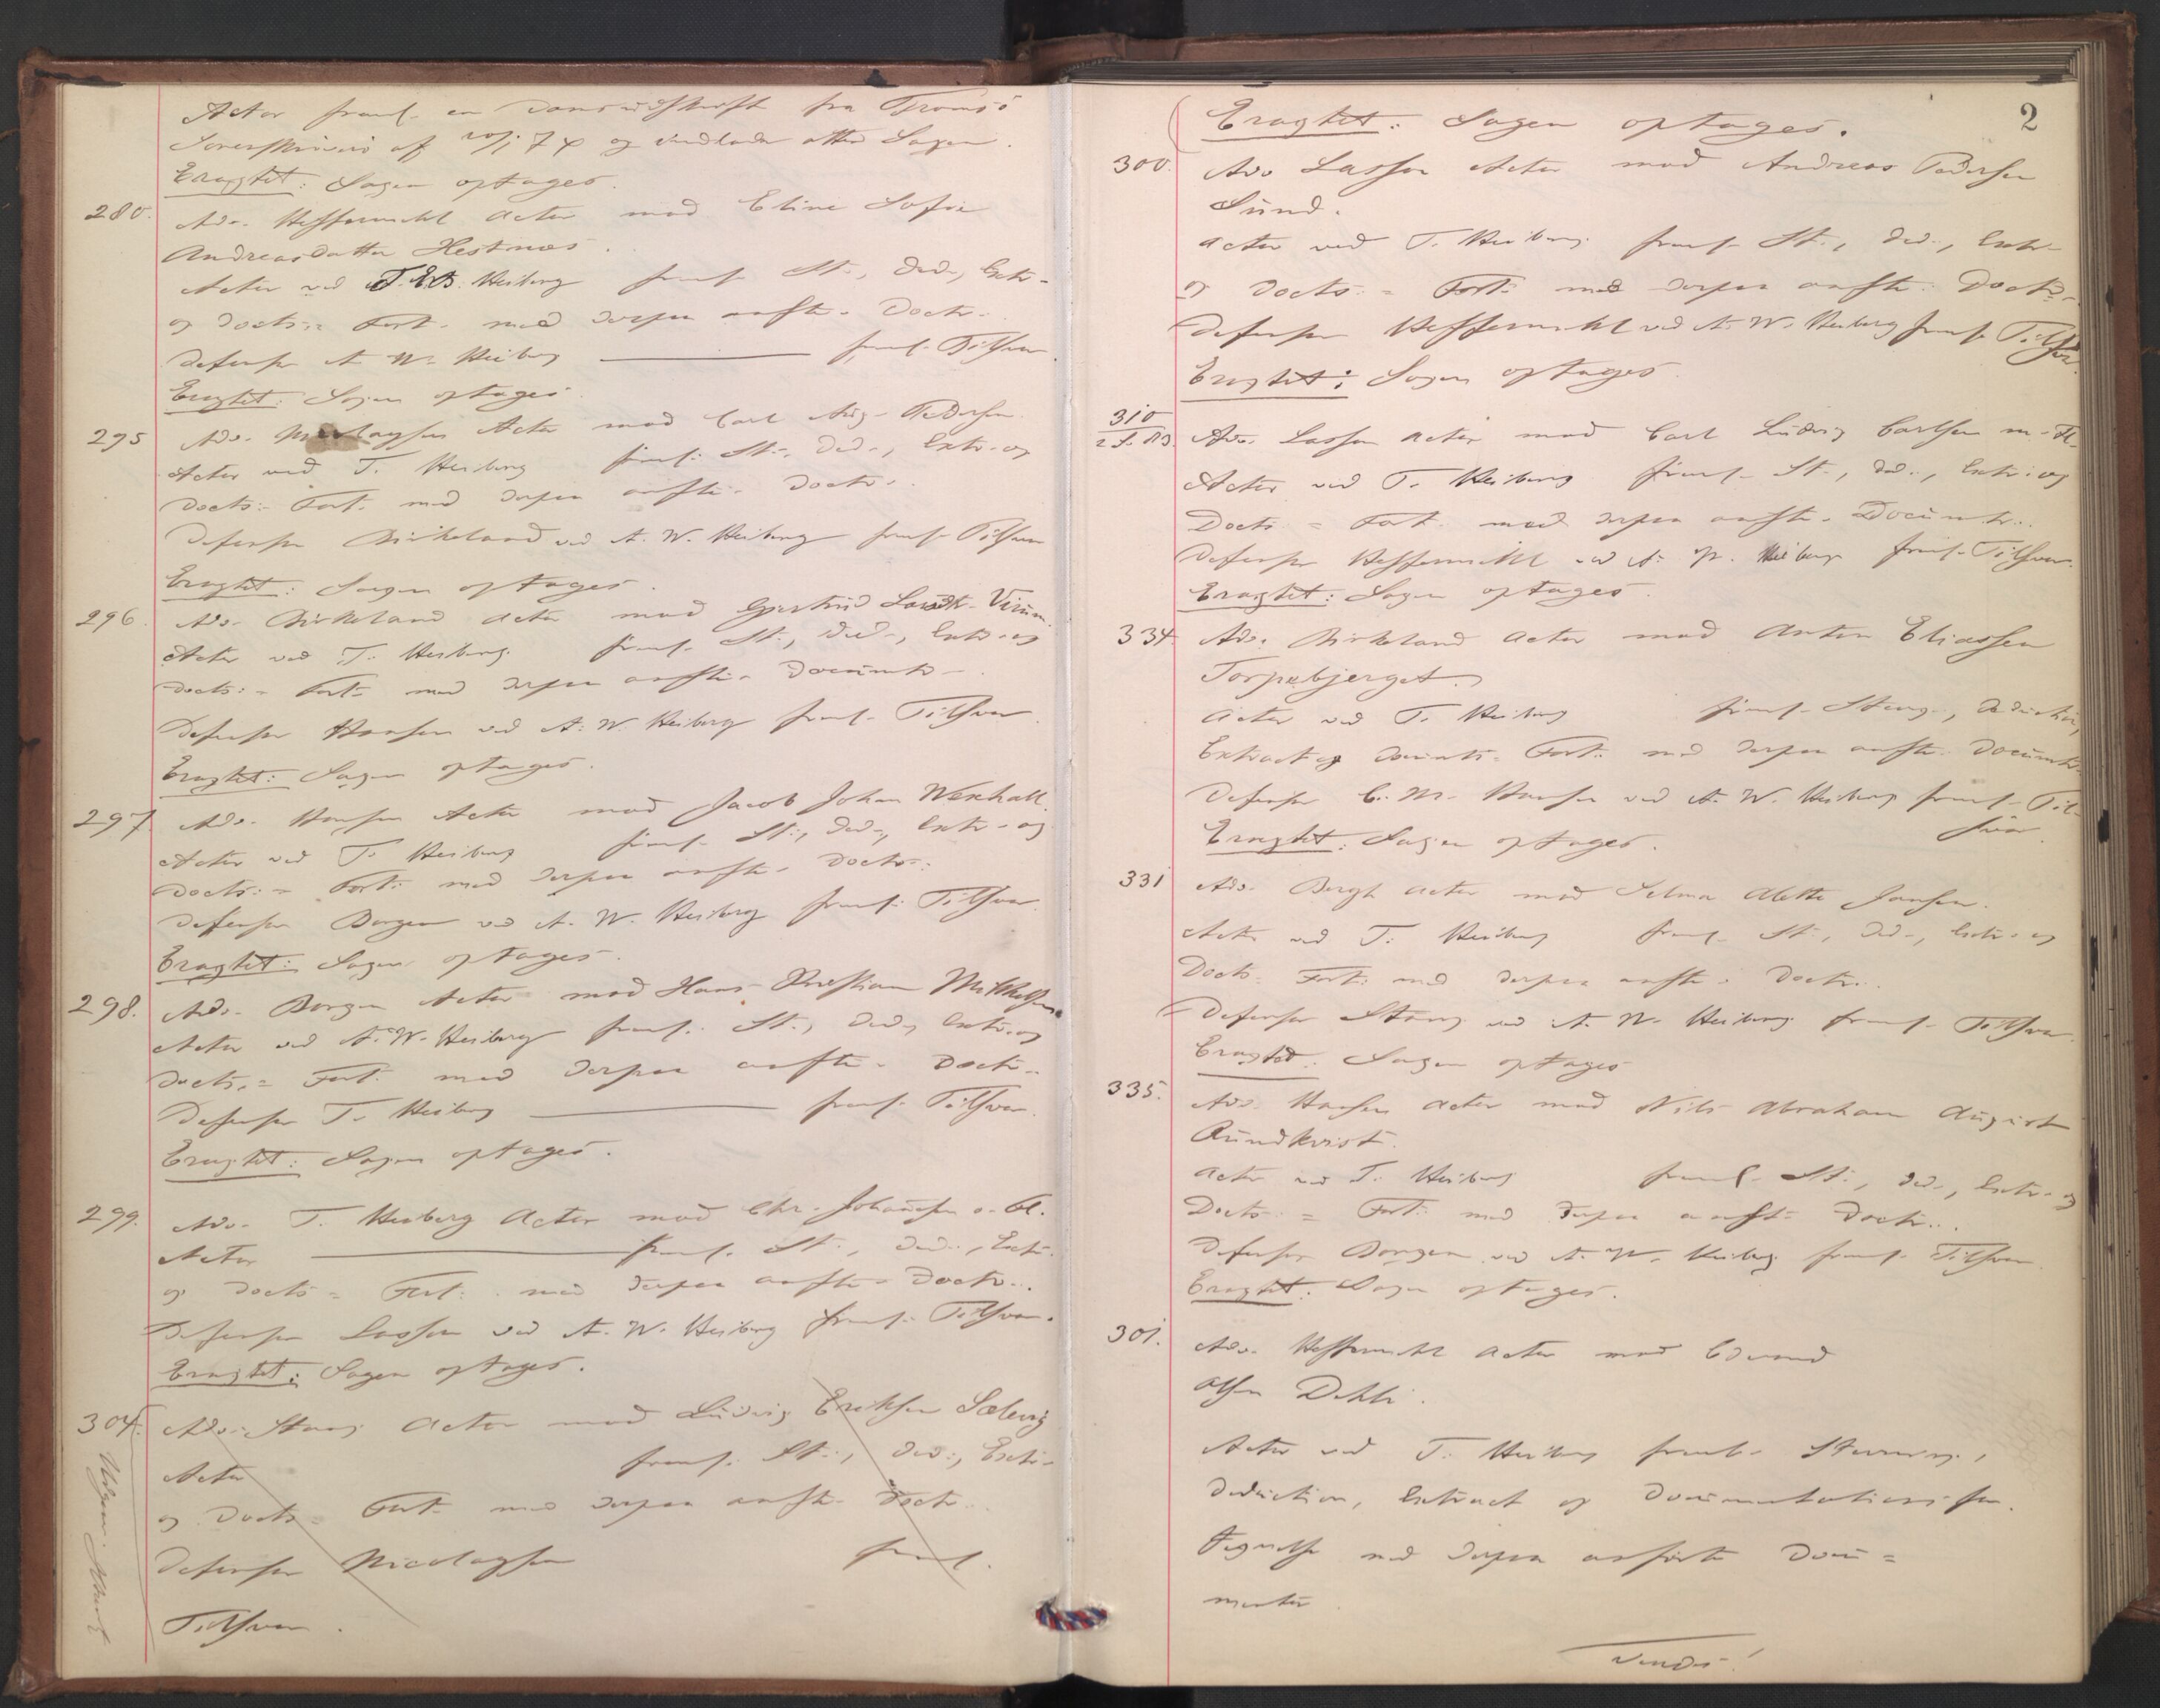 Actor freml. en Domsudskrift fra Tromsö
Sorenskriveri af og indlader atter Sagen.
Eragtet: Sagen optages.
280. Adv. Heffermehl Actor mod Eline Sofie
Andreasdatter Hestnæs.
Actor ved T. Heiberg freml. St., Ded., Extr.
og Docts.= Fort. med derpaa anfte. Doctr.
Defensor A. W. Heiberg freml. Tilsvar.
Eragtet: Sagen optages.
295 Adv. Nicolaysen Actor mod Carl Aug. Pedersen.
Actor ved T. Heiberg freml. St., Ded., Extr. og
Docts.= Fort. med derpaa anfte. Doctr.
Defensor Birkeland ved A. W. Heiberg freml. Tilsvar
Eragtet: Sagen optages.
296. Adv. Birkeland Actor mod Gjertrud Virum.
Actor ved T. Heiberg freml. St., Ded., Extr. og
Docts.= Fort. med derpaa anfte. Documtr.
Defensor Hansen ved A. W. Heiberg freml. Tilsvar.
Eragtet: Sagen optages.
297 Adv. Hansen Actor mod Jacob Johan Wexhall.
Actor ved T. Heiberg freml. St., Ded., Extr. og
Docts.= Fort. med derpaa anfte. Doctr.
Defensor Borgen ved A. W. Heiberg freml. Tilsvar.
Eragtet: Sagen optages.
298. Adv. Borgen Actor mod Hans Kristian Mikkelsen.
Actor ved A. W. Heiberg freml. St., Ded., Extr. og
Docts.= Fort. med derpaa anfte. Doctr.
Defensor T. Heiberg freml. Tilsvar.
Eragtet: Sagen optages.
299. Adv. T. Heiberg Actor mod Chr. Johansen o. Fl.
Actor freml. St., Ded., Extr.
og Docts.= Fort. med derpaa anfte. Doctr.
Defensor Lasson ved A. W. Heiberg freml. Tilsvar.
Eragtet: Sagen optages.
304. Adv. Stang Actor mod Ludvig Eriksen Solevig
Actor freml. St., Ded., Extr.
og Docts.= Fort. med derpaa anfte. Doctr.
Defensor Nicolaysen freml.
Tilsvar.
2
Eragtet: Sagen optages.
300. Adv. Lasson Actor mod Andreas Pedersen
Sund.
Actor ved T. Heiberg freml. St., Ded., Extr.
og Docts.= Fort. med derpaa anfte. Doctr.
Defensor Heffermehl ved A. W. Heiberg freml. Tilsvar
Eragtet: Sagen optages.
310 Adv. Lasson Actor mod Carl Ludvig Carlsen m. Fl.
Actor ved T. Heiberg freml. St., Ded., Extr. og
Docts.= Fort. med derpaa anfte. Documtr.
Defensor Heffermehl ved A. W. Heiberg freml. Tilsvar.
Eragtet: Sagen optages.
334. Adv. Birkeland Actor mod Anton Eliassen
Torpebjerget.
Actor ved T. Heiberg freml. Stevng., Deduction,
Extract og Documts.= Fort. med derpaa anfte. Documtr.
Defensor C. M. Hansen ved A. W. Heiberg freml. Til-
svar.
Eragtet: Sagen optages.
331 Adv. Bergh Actor mod Selma Alette Jansen.
Actor ved T. Heiberg freml. St., Ded., Extr. og
Docts.= Fort. med derpaa anfte. Doctr.
Defensor Stang ved A. W. Heiberg freml. Tilsvar.
Eragtet: Sagen optages
335. Adv. Hansen Actor mod Nils Abraham August
Rundkvist.
Actor ved T. Heiberg freml. St., Ded., Extr. og
Docts.= Fort. med derpaa anfte. Doctr.
Defensor Borgen ved A. W. Heiberg freml. Tilsvar.
Eragtet: Sagen optages.
301. Adv. Heffermehl Actor mod Edvard
Olsen Dehli.
Actor ved T. Heiberg freml. Stevning,
Deduction, Extract og Documentationsfor-
tegnelse med derpaa anførte Docu=
menter.
Vende!